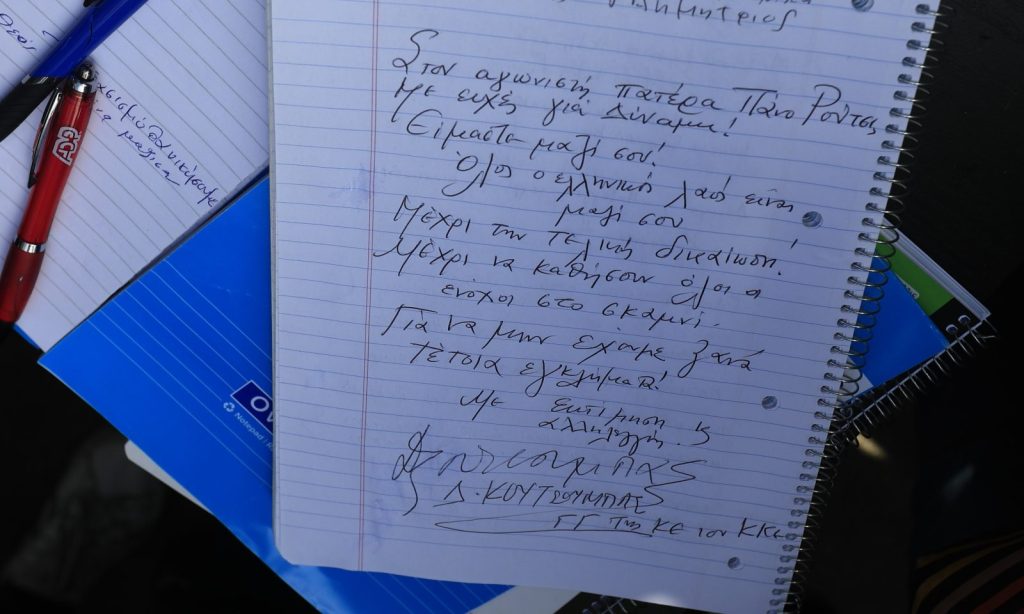 Δημήτριος
Στον αγωνιστή πατέρα Πάνο Ρούτσι,
Με ευχές για Δύναμη!
Είμαστε μαζί σου!
Όλος ο ελληνικός λαός είναι
μαζί σου
Μέχρι την τελική δικαίωση!
Μέχρι να καθήσουν όλοι οι
ενόχοι στο σκαμνί.
Για να μην έχουμε ξανά
τέτοια εγκλήματα!
Με εκτίμηση κ
αλληλεγγύη.
Δ. ΚΟΥΤΣΟΥΜΠΑΣ
ΓΓ της ΚΕ του ΚΚΕ
Notepad